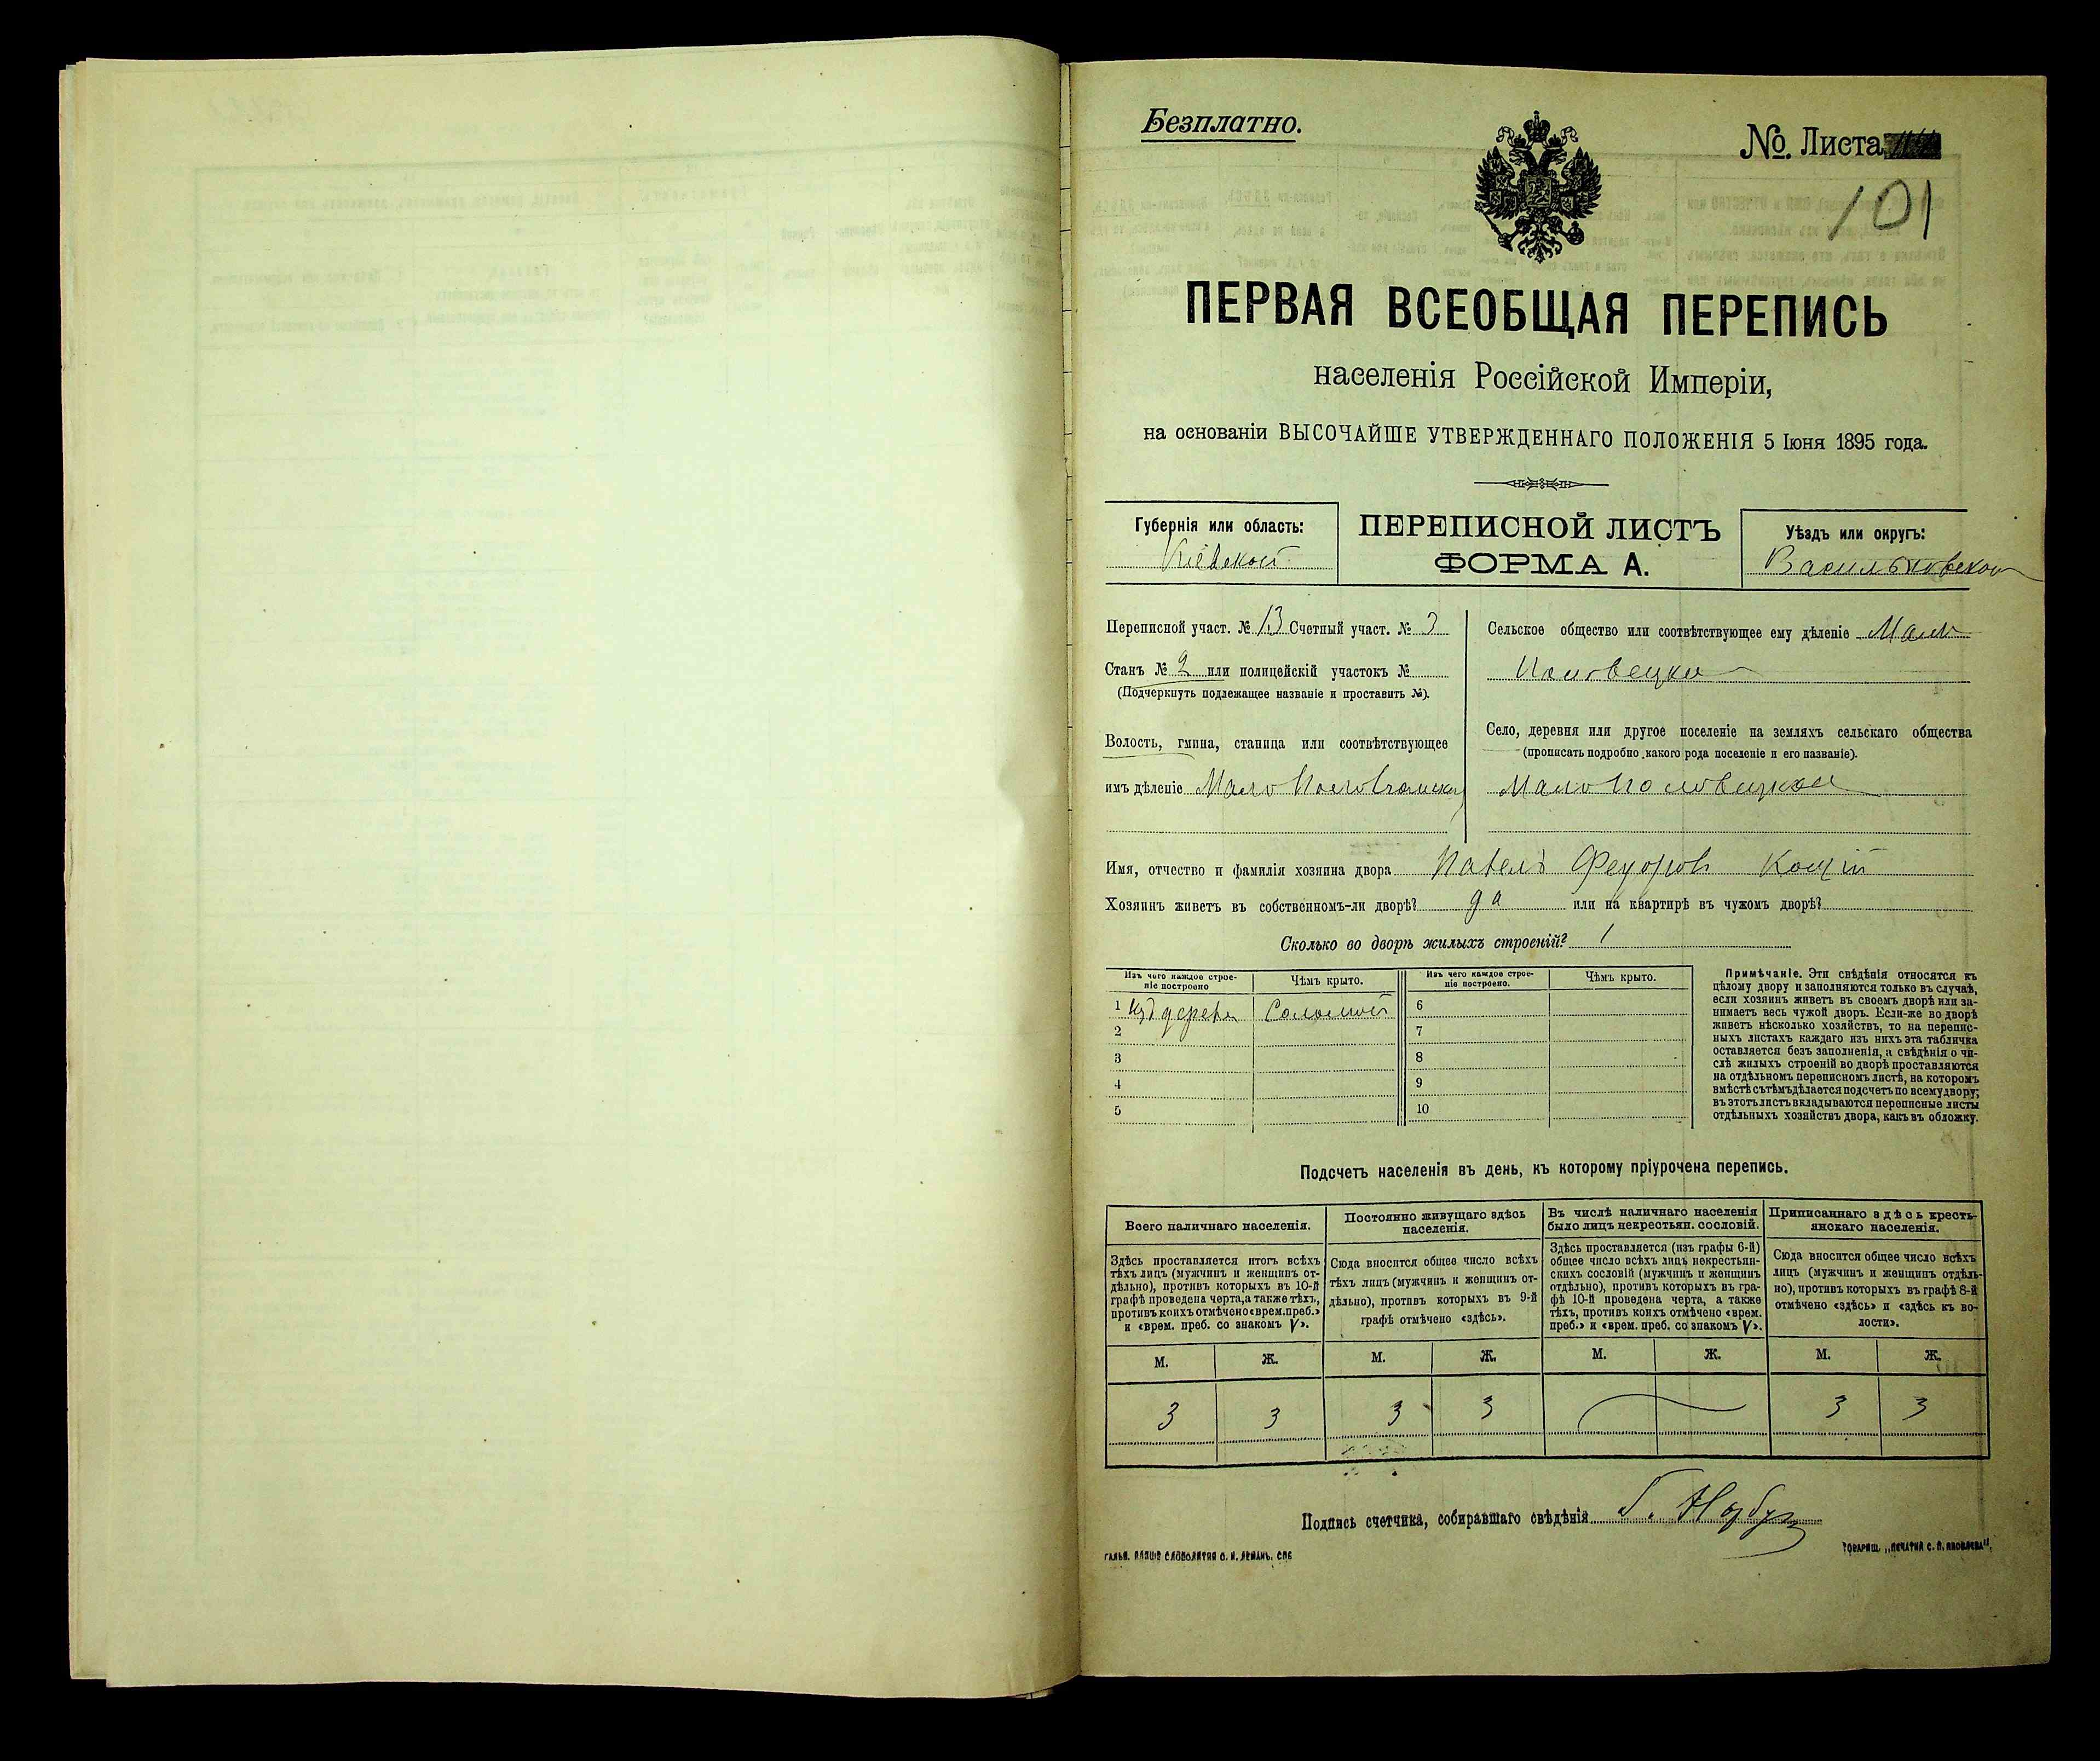 Безплатно.
№. Листа
101
ПЕРВАЯ ВСЕОБЩАЯ ПЕРЕПИСЬ
населенія Россійской Имперіи,
на основаніи ВЫСОЧАЙШЕ УТВЕРЖДЕННАГО ПОЛОЖЕНІЯ 5 Іюня 1895 года.
Губернія или область:
Кіевской
ПЕРЕПИСНОЙ ЛИСТЪ
ФОРМА А.
Уѣздъ или округъ:
Васильковской
Переписной участ. № 13 Счетный участ. № 3
Станъ № 2 или полицейскій участокъ №
(Подчеркнуть подлежащее названіе и проставить №).
Волость, гмина, станица или соотвѣтствующее
имъ дѣленіе Мало
Сельское общество или соотвѣтствующее ему дѣленіе Мало
Половецкое
Село, деревня или другое поселеніе на земляхъ сельскаго общества
(прописать подробно какого рода поселеніе и его названіе).
Мало Половецкое
Имя, отчество и фамилія хозяина двора Павелъ Федоровъ Кощій
Хозяинъ живетъ въ собственномъ-ли дворѣ? да или на квартирѣ въ чужомъ дворѣ?
Сколько во дворѣ жилыхъ строеній? 1
Изъ чего каждое строе-
ніе построено
Чѣмъ крыто.
Изъ чего каждое строе-
ніе построено.
Чѣмъ крыто.
1 Изъ дерева Соломой 6
2 7
3 8
4 9
5 10
Примѣчаніе. Эти свѣдѣнія относятся къ
цѣлому двору и заполняются только въ случаѣ,
если хозяинъ живетъ въ своемъ дворѣ или за-
нимаетъ весь чужой дворъ. Если-же во дворѣ
живетъ нѣсколько хозяйствъ, то на перепис-
ныхъ листахъ каждаго изъ нихъ эта табличка
оставляется безъ заполненія, а свѣдѣнія о чи-
слѣ жилыхъ строеній во дворѣ проставляются
на отдѣльномъ переписномъ листѣ, на которомъ
вмѣстѣ съ тѣмъ дѣлается подсчетъ по всему двору;
въ этотъ листъ вкладываются переписные листы
отдѣльныхъ хозяйствъ двора, какъ въ обложку.
Подсчетъ населенія въ день, къ которому пріурочена перепись.
Всего наличнаго населенія.
Здѣсь проставляется итогъ всѣхъ
тѣхъ лицъ (мужчинъ и женщинъ от-
дѣльно), противъ которыхъ въ 10-й
графѣ проведена черта, а также тѣхъ,
противъ коихъ отмѣчено «врем. преб.»
и «врем. преб. со знакомъ V».
Постоянно живущаго здѣсь
населенія.
Сюда вносится общее число всѣхъ
тѣхъ лицъ (мужчинъ и женщинъ от-
дѣльно), противъ которыхъ въ 9-й
графѣ отмѣчено «здѣсь».
Въ числѣ наличнаго населенія
было лицъ некрестьян. сословій.
Здѣсь проставляется (изъ графы 6-й)
общее число всѣхъ лицъ некрестьян-
скихъ сословій (мужчинъ и женщинъ
отдѣльно), противъ которыхъ въ гра-
фѣ 10-й проведена черта, а также
тѣхъ, противъ коихъ отмѣчено «врем.
преб.» и «врем. преб. со знакомъ V».
Приписаннаго здѣсь кресть-
янскаго населенія.
Сюда вносится общее число всѣхъ
лицъ (мужчинъ и женщинъ отдѣль-
но), противъ которыхъ въ графѣ 8-й
отмѣчено «здѣсь» и «здѣсь къ во-
лости».
М. Ж. М. Ж. М. Ж. М. Ж.
3 3 3 3 3 3
Подпись счетчика, собиравшаго свѣдѣнія